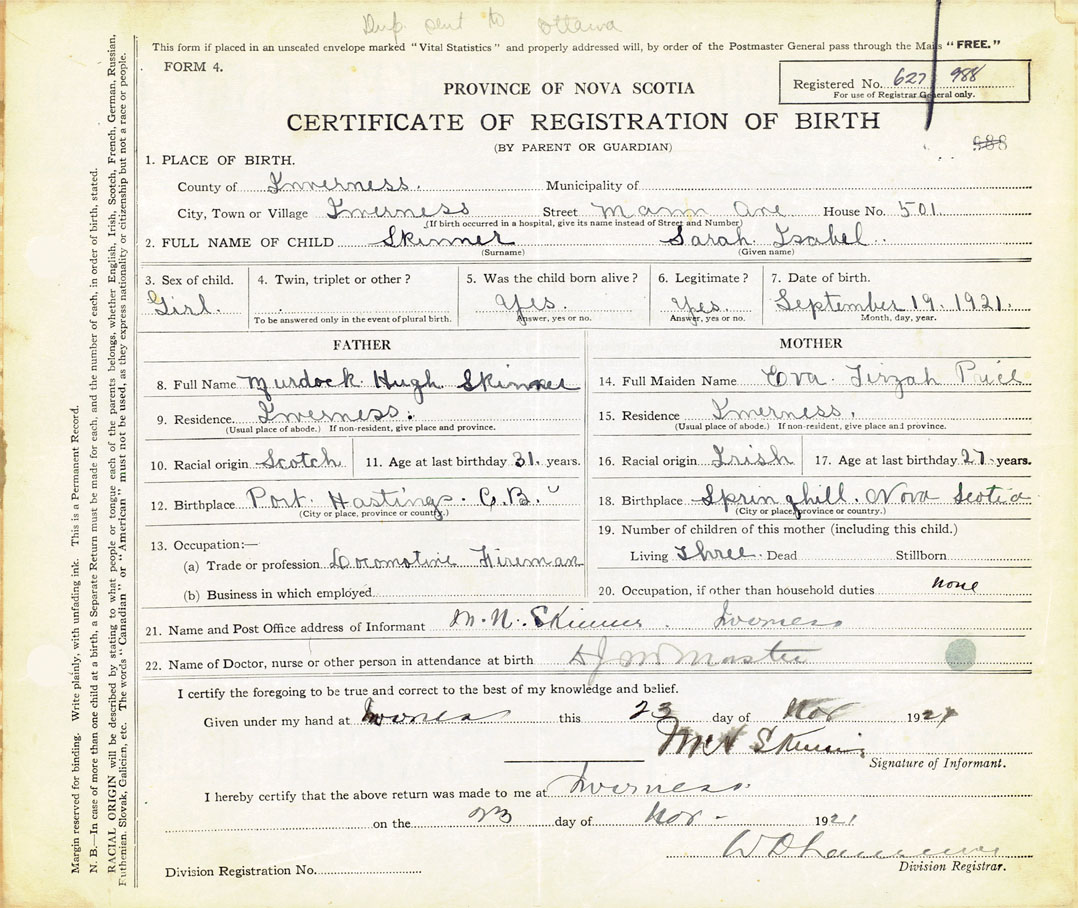 Dup. sent to Ottawa
This form if placed in an unsealed envelope marked "Vital Statistics" and properly addressed will, by order of the Postmaster General pass through the Mails "FREE."
FORM 4.
Registered No. 627 988
For use of Registrar General only.
PROVINCE OF NOVA SCOTIA
CERTIFICATE OF REGISTRATION OF BIRTH
(BY PARENT OR GUARDIAN)
988
1. PLACE OF BIRTH.
County of Inverness. Municipality of
City, Town or Village Inverness Street Mann Ave House No. 501
(If birth occurred in a hospital, give its name instead of Street and Number)
2. FULL NAME OF CHILD Skinner Sarah Isabel.
(Surname) (Given name)
3. Sex of child. 4. Twin, triplet or other? 5. Was the child born alive? 6. Legitimate? 7. Date of birth.
Girl. Yes. Yes. September 19. 1921.
To be answered only in the event of plural birth. Answer, yes or no. Answer, yes or no. Month, day, year.
FATHER MOTHER
8. Full Name Murdock Hugh Skinner
9. Residence. Inverness.
(Usual place of abode.) If non-resident, give place and province.
10. Racial origin Scotch 11. Age at last birthday 31. years.
12. Birthplace Port Hastings. C.B.
(City or place, province or country.)
13. Occupation:—
(a) Trade or profession Locomotive Fireman
(b) Business in which employed
14. Full Maiden Name Eva Tirzah Price
15. Residence Inverness.
(Usual place of abode.) If non-resident, give place and province.
16. Racial origin Irish 17. Age at last birthday 27 years.
18. Birthplace Springhill. Nova Scotia
(City or place, province or country.)
19. Number of children of this mother (including this child.)
Living Three. Dead Stillborn
20. Occupation, if other than household duties none
21. Name and Post Office address of Informant M. H. Skinner. Inverness
22. Name of Doctor, nurse or other person in attendance at birth
I certify the foregoing to be true and correct to the best of my knowledge and belief.
Given under my hand at Inverness this 23 day of Nov 1921
M H Skinner
Signature of Informant.
I hereby certify that the above return was made to me at Inverness.
on the 23 day of Nov - 1921
Division Registrar.
Division Registration No.
Margin reserved for binding. Write plainly, with unfading ink. This is a Permanent Record.
N. B.—In case of more than one child at a birth, a Separate Return must be made for each, and the number of each, in order of birth, stated.
RACIAL ORIGIN will be described by stating to what people or tongue each of the parents belongs, whether English, Irish, Scotch, French, German, Russian,
Ruthenian, Slovak, Galician, etc. The words "Canadian" or "American" must not be used, as they express nationality or citizenship but not a race or people.